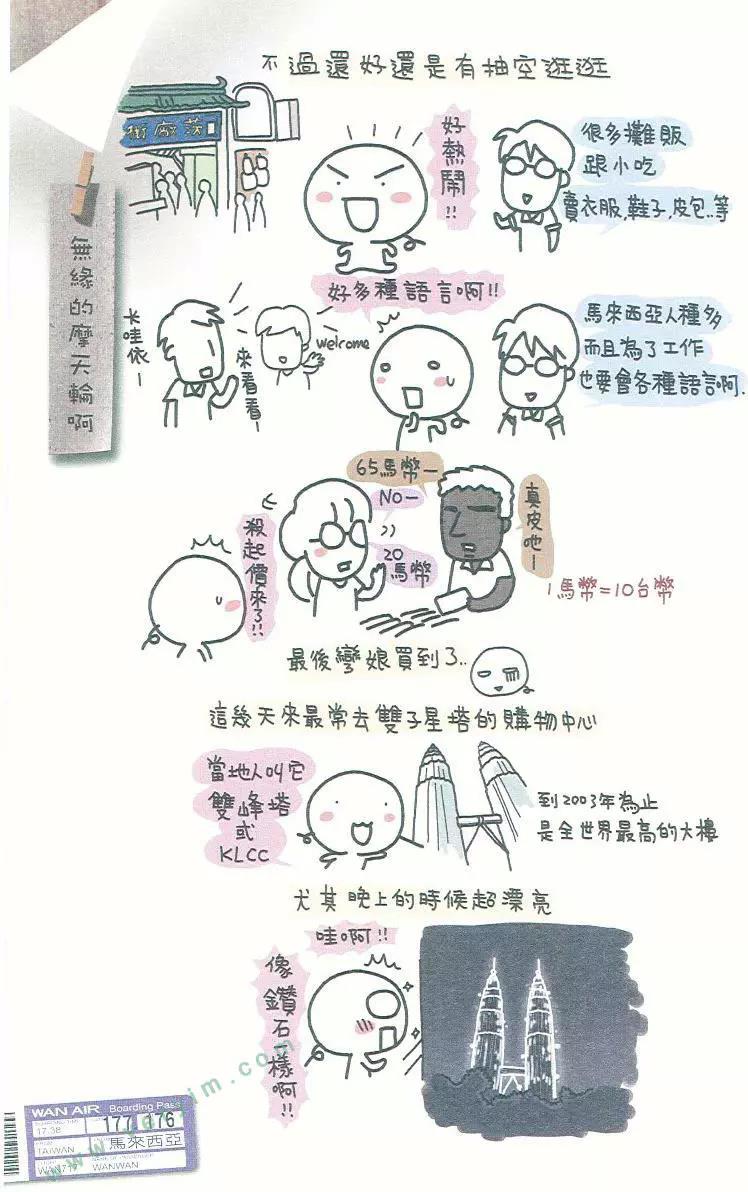 不過還好還是有抽空逛逛
茨廠街
好熱鬧!!
很多攤販
跟小吃
賣衣服,鞋子,皮包..等
無緣的摩天輪啊
好多種語言啊!!
卡哇依—
來看看—
welcome
馬來西亞人種多
而且為了工作
也要會各種語言啊.
65馬幣—
NO—
20
馬幣
真皮吔—
殺起價來了!!
1馬幣=10台幣
最後彎娘買到了..
這幾天來最常去雙子星塔的購物中心
當地人叫它
雙峰塔
或
KLCC
到2003年為止
是全世界最高的大樓
尤其晚上的時候超漂亮
哇啊!!
像鑽石一樣啊!!
WAN AIR Boarding Pass
17:38
177 176
TAIWAN
馬來西亞
WANWAN